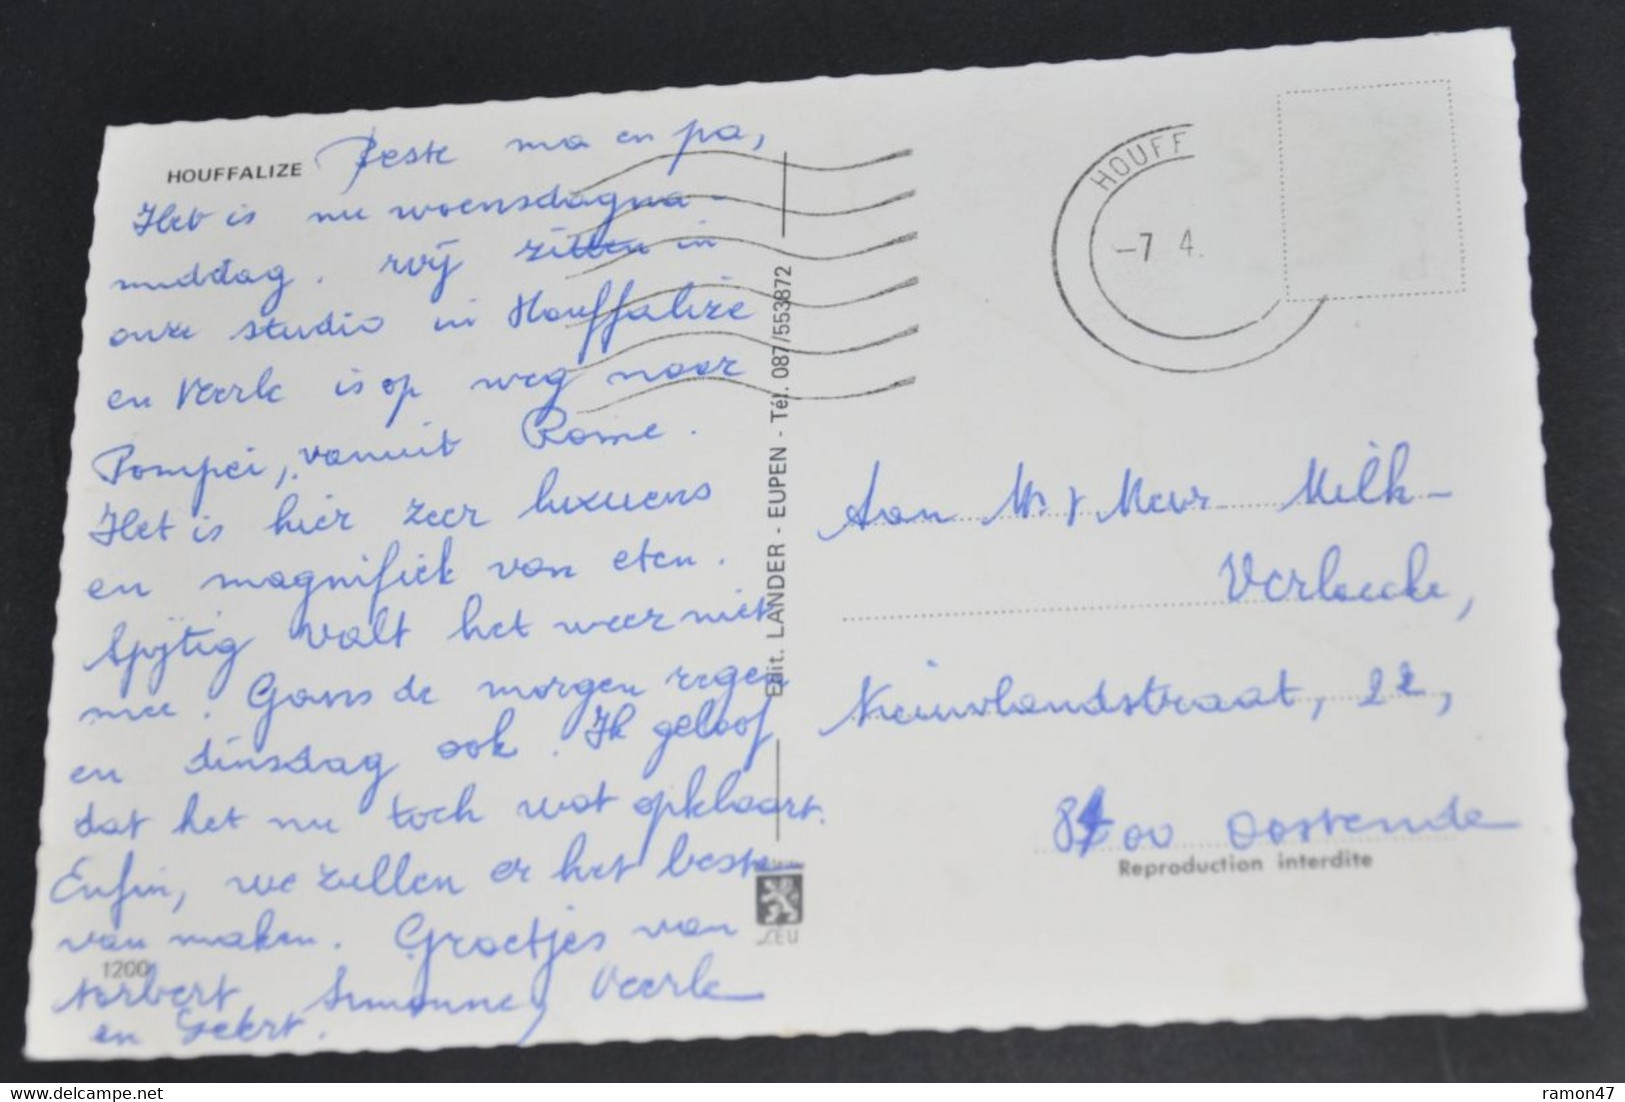 HOUFFALIZE
Beste ma en pa,
Het is nu woensdagna-
middag. Wij zitten in
onze studio in Houffalize
en Veerle is op weg naar
Pompei, vanuit Rome.
Het is hier zeer luxueus
en magnifiek van eten.
Spijtig valt het weer niet
mee. Gans de morgen regen
en dinsdag ook. Ik geloof
dat het nu toch wat opklaart.
Enfin, we zullen er het beste
van maken. Groetjes van
Norbert, Simonne, Veerle
en Geert.
1200
Edit. LANDER - EUPEN - Tél. 087/553872
LEU
HOUFF
-7 4.
Aan Mr & Mevr Milh-
Verbeeke,
Nieuwlandstraat, 22,
8400 Oostende
Reproduction interdite
delcampe.net
ramon47